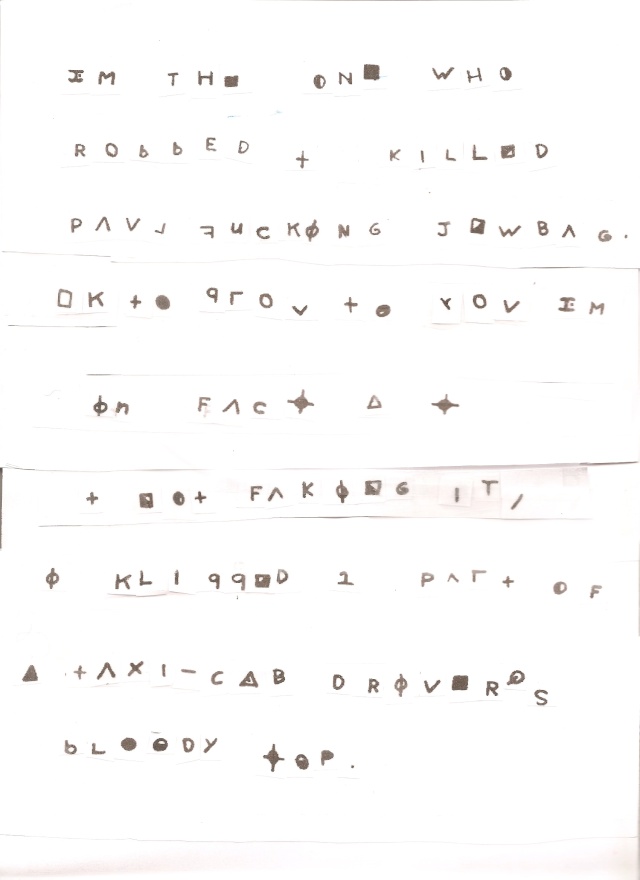 IM TH■ ◐N■ WHO◑
RObbED + KILL◪D
PΛV⅃ ꟻUCKϕNG J◪WBΛG.
▯K +● qΓOV +● YOV IM
ϕn FΛC⌖ Δ ⌖
+ ◪◐+ FΛKϕ◪G IT,
ϕ KLIqq◪D 1 PΛΓ+ OF
▲ +ΛXI-CΔB DRϕV■R◐S
bL●●DY ⌖●P.